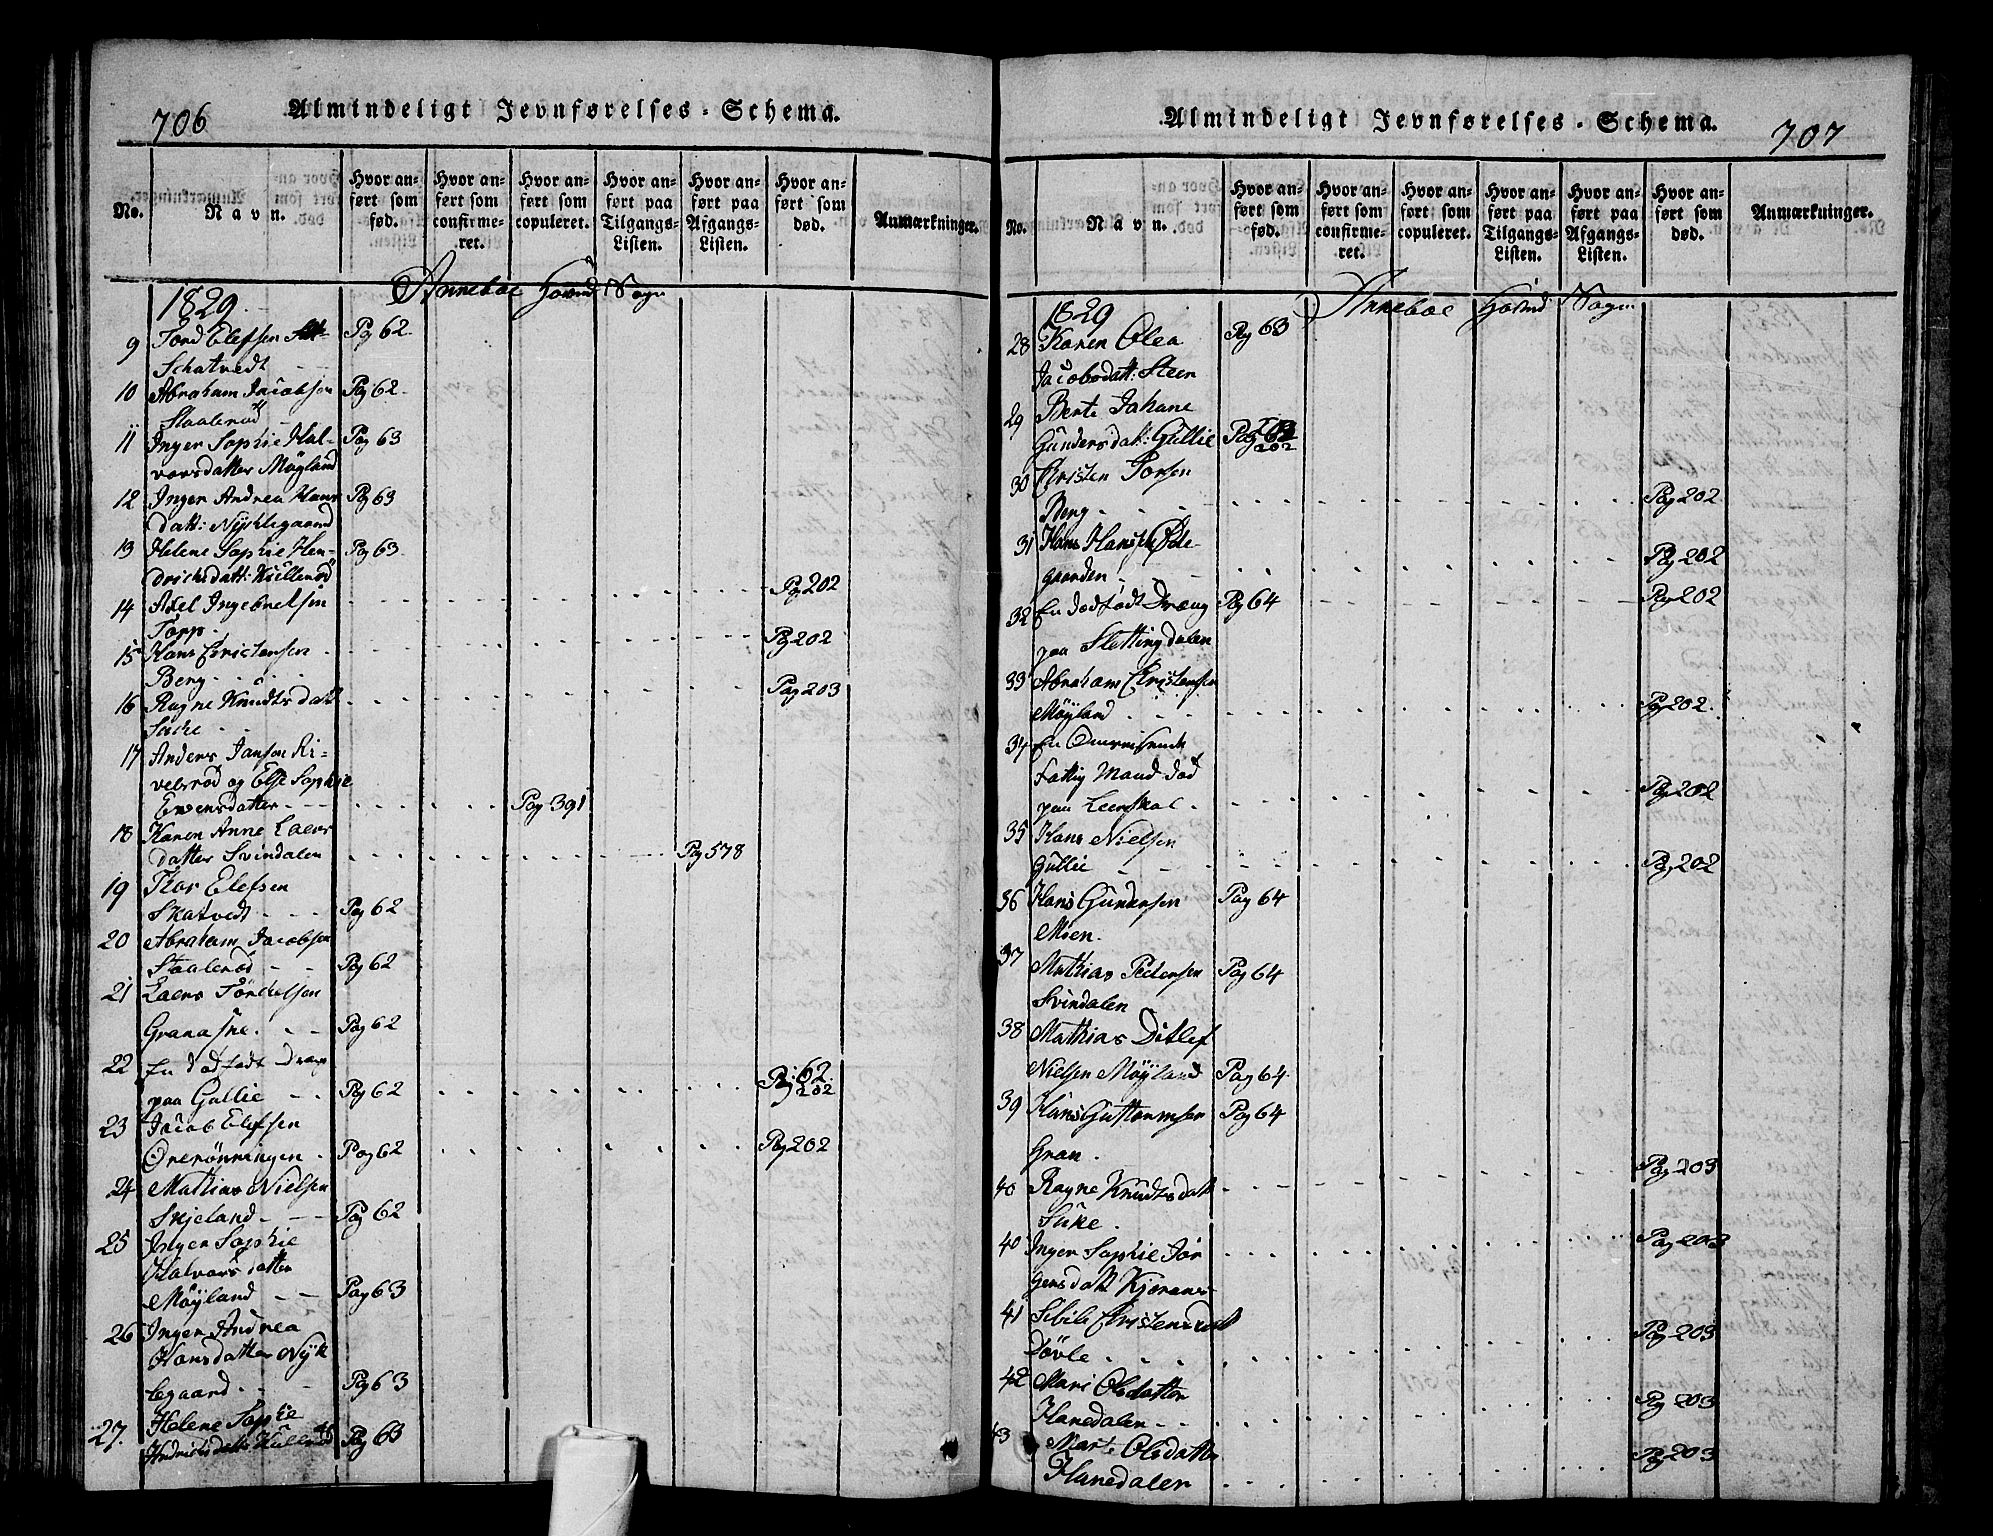 706
Almindeligt Jevnførelses-Schema.
No.
Navn.
Hvor anført som fød.
Hvor anført som confirmeret.
Hvor anført som copuleret.
Hvor anført paa Tilgangs-Listen.
Hvor anført paa Afgangs-Listen.
Hvor anført som død.
Anmærkninger.
1829 Anneboe Hovind Sogn
9 Tord Elefsen Pag 62
Schatvedt
10 Abraham Jacobsen Pag 62
Staalerød
11 Inger Sophie Hal- Pag 63
vorsdatter Møyland
12 Inger Andrea Hans Pag 63
datt: Nyklegaard
13 Helene Sophie Hen- Pag 63
drichsdatt: Kullerød
14 Axel Ingebretsen Pag 202
Torp
15 Hans Christensen Pag 202
Berg
16 Ragne Knudtsdatt Pag 203
Suke
17 Anders Jansen Ri-
velsrød og Else Sophie
Evensdatter Pag 391
18 Karen Anne Laers
datter Svindalen Pag 578
19 Thor Elefsen
Skatvedt Pag 62
20 Abraham Jacobsen
Staalerød Pag 62
21 Laers Torkelsen
Grana Pag 62
22 En dødfødt Dreng
paa Gullie Pag 62 Pag 62 202
23 Jacob Elefsen
Ørerønningen Pag 62 Pag 202
24 Mathias Nielsen
Skjeland Pag 62
25 Inger Sophie
Halvorsdatter
Møyland Pag 63
26 Inger Andrea
Hansdatter Nyk
legaard Pag 63
27. Helene Sophie
Hendrichsdatt: Kullerød Pag 63
Almindeligt Jevnførelses-Schema.
707
No.
Navn.
Hvor anført som fød.
Hvor anført som confirmeret.
Hvor anført som copuleret.
Hvor anført paa Tilgangs-Listen.
Hvor anført paa Afgangs-Listen.
Hvor anført som død.
Anmærkninger.
1829 Anneboe Hovind Sogn
28 Karen Olea Pag 63
Jacobsdatt: Steen
29 Berte Johane
Gundersdatt: Gullie Pag 202
30 Christen Torsen
Berg Pag 202
31 Hans Hansen Øde-
gaarden Pag 202
32 En dødfødt Dreng Pag 64 Pag 202
paa Slettingdalen
33 Abraham Christensen
Møyland Pag 202
34 En Omreisende
Fattig Mand død
paa Leerskal Pag 202
35 Hans Nielsen
Gullie Pag 202
36 Hans Gundersen Pag 64
Moen.
37 Mathias Pedersen Pag 64
Svindalen
38 Mathias Ditlef
Nielsen Møyland Pag 64
39 Hans Guttormsen Pag 64
Gran.
40 Ragne Knudtsdatt Pag 203
Suke.
40 Inger Sophie Jør Pag 203
gensdatt Kjæraas
41 Sibile Christensdatt
Døvle Pag 203
42 Mari Olsdatter
Hanedalen Pag 203
43 Marte Olsdatter
Hanedalen Pag 203